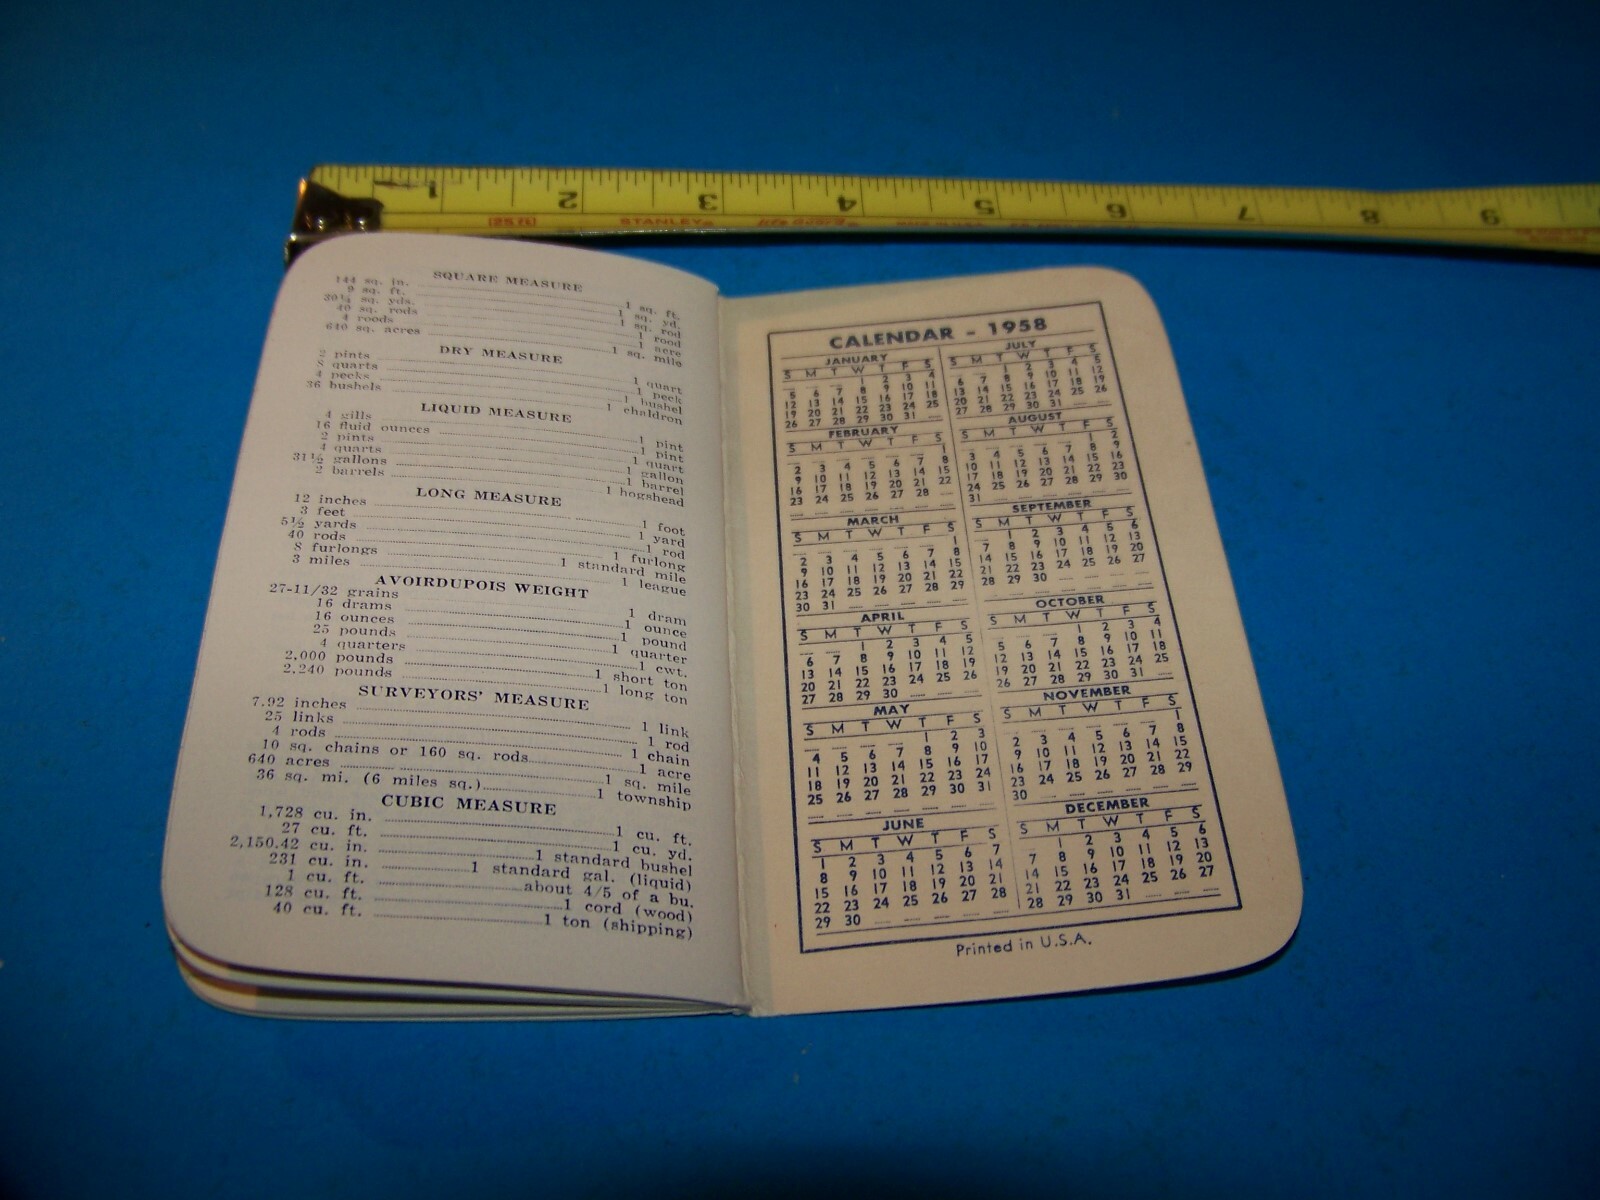 1 2 3 4 5 6 7 8 9
25 FT STANLEY
SQUARE MEASURE
144 sq. in. 1 sq. ft.
9 sq. ft. 1 sq. yd.
30¼ sq. yds. 1 sq. rod
40 sq. rods 1 rood
4 roods 1 acre
640 sq. acres 1 sq. mile
DRY MEASURE
2 pints 1 quart
8 quarts 1 peck
4 pecks 1 bushel
36 bushels 1 chaldron
LIQUID MEASURE
4 gills 1 pint
16 fluid ounces 1 pint
2 pints 1 quart
4 quarts 1 gallon
31½ gallons 1 barrel
2 barrels 1 hogshead
LONG MEASURE
12 inches 1 foot
3 feet 1 yard
5½ yards 1 rod
40 rods 1 furlong
8 furlongs 1 standard mile
3 miles 1 league
AVOIRDUPOIS WEIGHT
27-11/32 grains 1 dram
16 drams 1 ounce
16 ounces 1 pound
25 pounds 1 quarter
4 quarters 1 cwt.
2,000 pounds 1 short ton
2,240 pounds 1 long ton
SURVEYORS' MEASURE
7.92 inches 1 link
25 links 1 rod
4 rods 1 chain
10 sq. chains or 160 sq. rods 1 acre
640 acres 1 sq. mile
36 sq. mi. (6 miles sq.) 1 township
CUBIC MEASURE
1,728 cu. in. 1 cu. ft.
27 cu. ft. 1 cu. yd.
2,150.42 cu. in. 1 standard bushel
231 cu. in. 1 standard gal. (liquid)
1 cu. ft. about 4/5 of a bu.
128 cu. ft. 1 cord (wood)
40 cu. ft. 1 ton (shipping)
CALENDAR - 1958
JANUARY
S M T W T F S
1 2 3 4
5 6 7 8 9 10 11
12 13 14 15 16 17 18
19 20 21 22 23 24 25
26 27 28 29 30 31
FEBRUARY
S M T W T F S
1
2 3 4 5 6 7 8
9 10 11 12 13 14 15
16 17 18 19 20 21 22
23 24 25 26 27 28
MARCH
S M T W T F S
1
2 3 4 5 6 7 8
9 10 11 12 13 14 15
16 17 18 19 20 21 22
23 24 25 26 27 28 29
30 31
APRIL
S M T W T F S
1 2 3 4 5
6 7 8 9 10 11 12
13 14 15 16 17 18 19
20 21 22 23 24 25 26
27 28 29 30
MAY
S M T W T F S
1 2 3
4 5 6 7 8 9 10
11 12 13 14 15 16 17
18 19 20 21 22 23 24
25 26 27 28 29 30 31
JUNE
S M T W T F S
1 2 3 4 5 6 7
8 9 10 11 12 13 14
15 16 17 18 19 20 21
22 23 24 25 26 27 28
29 30
JULY
S M T W T F S
1 2 3 4 5
6 7 8 9 10 11 12
13 14 15 16 17 18 19
20 21 22 23 24 25 26
27 28 29 30 31
AUGUST
S M T W T F S
1 2
3 4 5 6 7 8 9
10 11 12 13 14 15 16
17 18 19 20 21 22 23
24 25 26 27 28 29 30
31
SEPTEMBER
S M T W T F S
1 2 3 4 5 6
7 8 9 10 11 12 13
14 15 16 17 18 19 20
21 22 23 24 25 26 27
28 29 30
OCTOBER
S M T W T F S
1 2 3 4
5 6 7 8 9 10 11
12 13 14 15 16 17 18
19 20 21 22 23 24 25
26 27 28 29 30 31
NOVEMBER
S M T W T F S
1
2 3 4 5 6 7 8
9 10 11 12 13 14 15
16 17 18 19 20 21 22
23 24 25 26 27 28 29
30
DECEMBER
S M T W T F S
1 2 3 4 5 6
7 8 9 10 11 12 13
14 15 16 17 18 19 20
21 22 23 24 25 26 27
28 29 30 31
Printed in U.S.A.